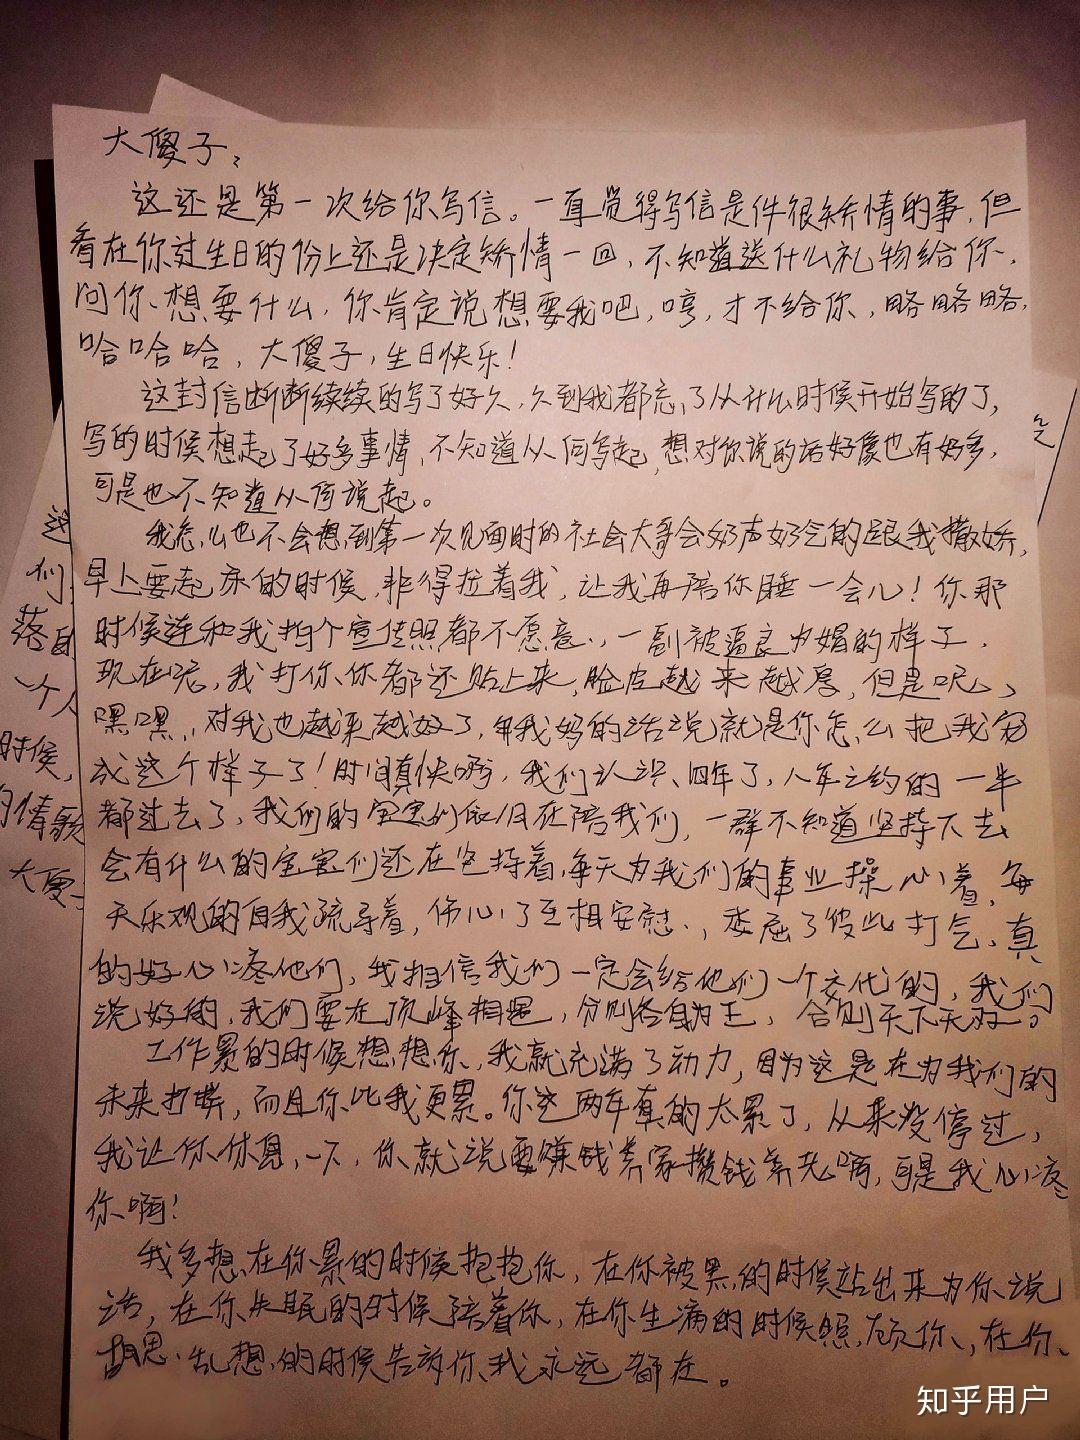 大傻子,
这还是第一次给你写信。一直觉得写信是件很矫情的事,但
看在你过生日的份上还是决定矫情一回,不知道送什么礼物给你,
问你想要什么,你肯定说想要我吧,哼,才不给你,略略略,
哈哈哈,大傻子,生日快乐!
这封信断断续续的写了好久,久到我都忘了从什么时候开始写的了,
写的时候想起了好多事情,不知道从何写起,想对你说的话好像也有好多,
可是也不知道从何说起。
我怎么也不会想到第一次见面时的社会大哥会好声好气的跟我撒娇,
早上要起床的时候,非得拉着我,让我再陪你睡一会儿!你那
时候连和我拍个宣传照都不愿意,一副被逼良为娼的样子,
现在呢,我打你你都还贴上来,脸皮越来越厚,但是呢,
嘿嘿,对我也越来越好了,用我妈的话说就是你怎么把我宠
成这个样子了!时间真快啊,我们认识四年了,八年之约的一半
都过去了,我们的宝宝们依旧在陪我们,一群不知道坚持下去
会有什么的宝宝们还在坚持着,每天为我们的事业操心着,每
天乐观的自我疏导着,伤心了互相安慰,委屈了彼此打气,真
的好心疼他们,我相信我们一定会给他们一个交代的,我们
说好的,我们要在顶峰相遇,分则各自为王,合则天下无双。
工作累的时候想想你,我就充满了动力,因为这是在为我们的
未来打拼,而且你比我更累。你这两年真的太累了,从来没停过,
我让你休息一下,你就说要赚钱养家攒钱养老啊,可是我心疼
你啊!
我多想在你累的时候抱抱你,在你被黑的时候站出来为你说
话,在你失眠的时候陪着你,在你生病的时候照顾你,在你
胡思乱想的时候告诉你我永远都在。
这
们
落
一个人
时候,
的情歌
大傻子
知乎用户